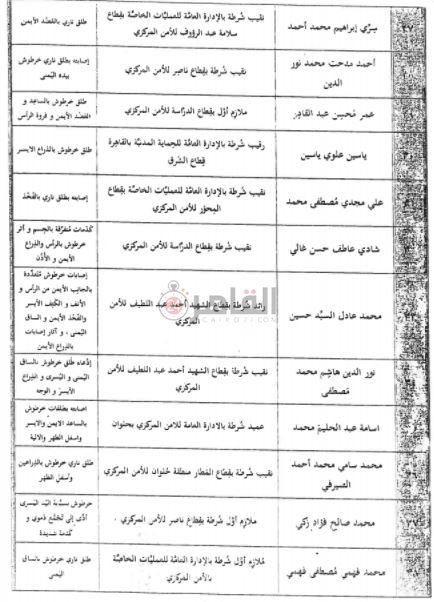 ٢٧ سري إبراهيم محمد أحمد نقيب شرطة بالإدارة العامة للعمليات الخاصة بقطاع طلق ناري بالفخذ الأيمن
سلامة عبد الرؤوف للأمن المركزي
أحمد مدحت محمد نور نقيب شرطة بقطاع ناصر للأمن المركزي إصابته بطلق ناري خرطوش
الدين بيده اليمنى
عمر محسن عبد القادر ملازم أول شرطة بقطاع الدراسة للأمن المركزي طلق خرطوش بالساعد و
الفخذ الأيمن و فروة الرأس
ياسين علوي ياسين رقيب شرطة بالإدارة العامة للحماية المدنية بالقاهرة طلق خرطوش بالذراع الايسر
قطاع الشرق
علي مجدي مصطفى محمد نقيب شرطة بالإدارة العامة للعمليات الخاصة بقطاع إصابته بطلق ناري بالفخذ
المحور للأمن المركزي
شادي عاطف حسن غالي نقيب شرطة بقطاع الدراسة للأمن المركزي كدمات متفرقة بالجسم و أثر
خرطوش بالرأس والذراع
الأيمن و الأذن
محمد عادل السيد حسين رائد شرطة بقطاع الشهيد أحمد عبد اللطيف للأمن
المركزي
إصابات خرطوش متعددة
بالجانب الأيمن من الرأس و
الأنف و الكتف الأيسر
والفخذ الأيمن و الساق
اليمنى ، و آثار إصابات
بالذراع الأيمن
القاهرة
CAIRO24.COM
نور الدين هاشم محمد نقيب شرطة بقطاع الشهيد أحمد عبد اللطيف للأمن
مصطفى المركزي
إدعاء طلق خرطوش بالساق
اليمنى و اليسرى و الذراع
الأيسر و الوجه
اسامة عبد الحليم محمد عميد شرطة بالادارة العامة للامن المركزي بحلوان اصابته بطلقات خرطوش
بالساعد الايمن والايسر
واسفل الظهر والالية
محمد سامي محمد أحمد نقيب شرطة بقطاع المطار منطقة حلوان للأمن المركزي طلق ناري خرطوش بالذراعين
الصيرفي وأسفل الظهر
٣٧ محمد صالح فؤاد زكي ملازم أول شرطة بقطاع ناصر للأمن المركزي خرطوش اليد اليسرى
أدى إلى تجمع دموي و
كدمة شديدة
محمد فهمي مصطفى فهمي ملازم أول شرطة بالإدارة العامة للعمليات الخاصة طلق ناري خرطوش بالساق
بالأمن المركزي اليمنى